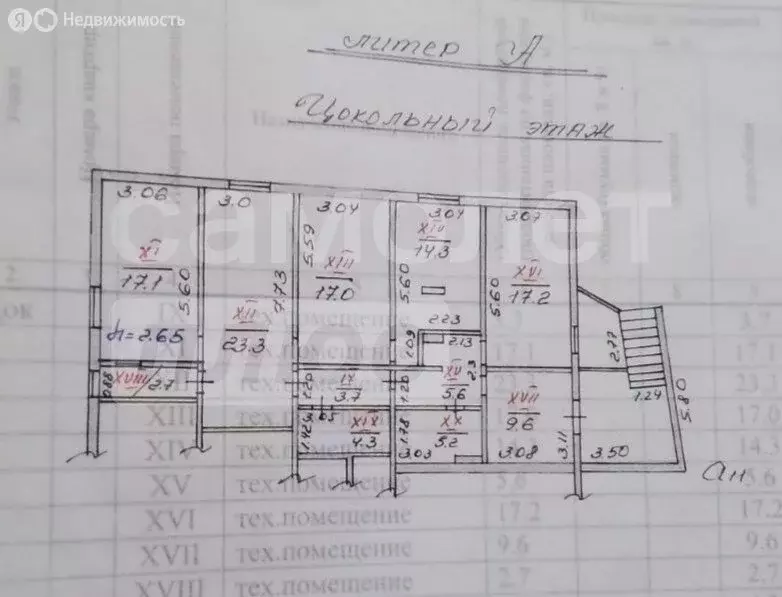 Я Недвижимость
литер А
Цокольный этаж
самолет
плюс
3.06
3.0
3.04
3.04
3.07
XI
17.1
5.60
h=2.65
XII
23.3
7.73
5.59
XIII
17.0
XIV
14.3
5.60
2.23
1.09
2.13
5.60
XVI
17.2
2.77
1.24
5.80
0.88
XVIII
2.7
1.20
IX
3.7
1.20
XV
5.6
2.3
XVII
9.6
1.42
XIX
4.3
1.78
XX
5.2
3.03
3.08
3.11
3.50
Ан
тех.помещение
XIII тех.помещение 17.0
XIV тех.помещение 14.3
XV тех.помещение 5.6 5.6
XVI тех.помещение 17.2 17.2
XVII тех.помещение 9.6 9.6
XVIII тех.помещение 2.7 2.7